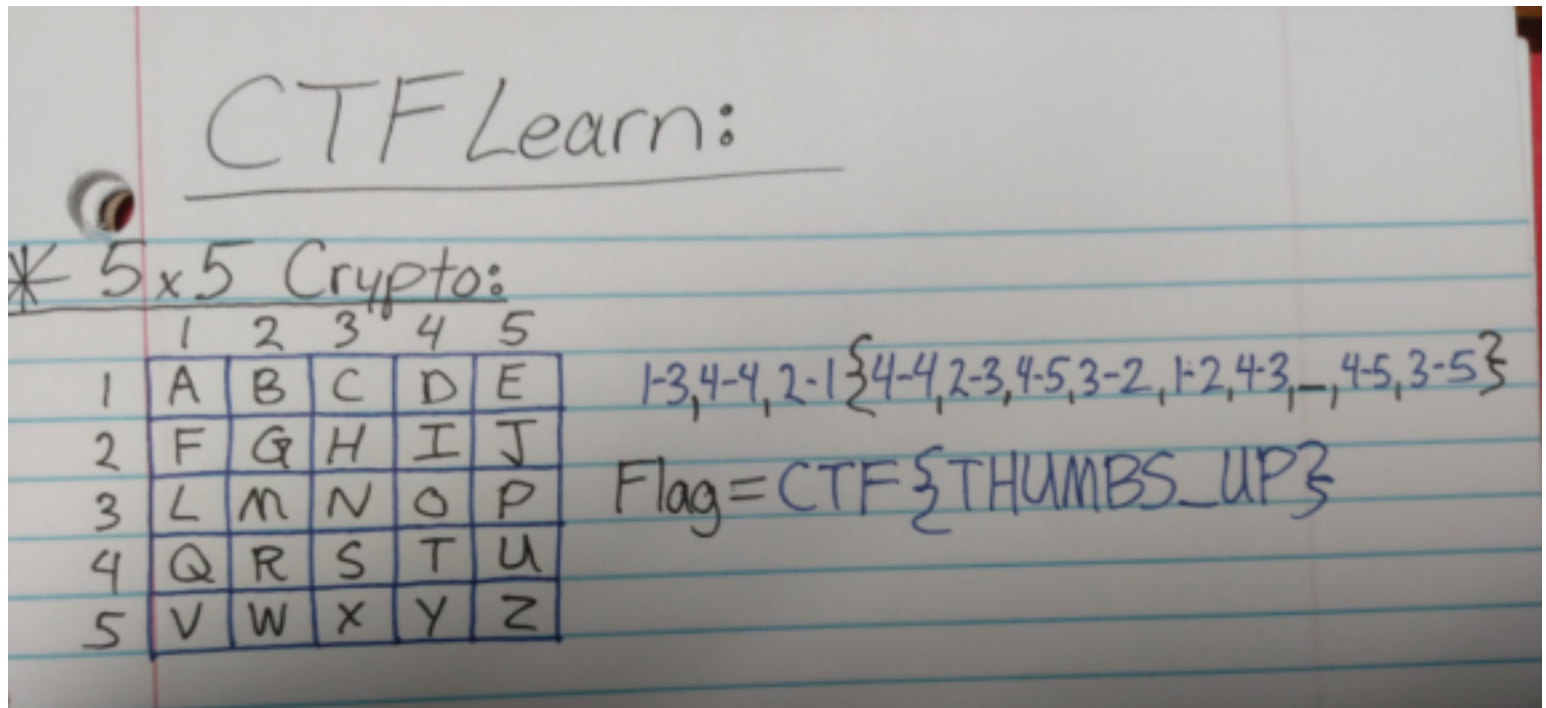 CTFLearn:
* 5x5 Crypto:
1 2 3 4 5
1 A B C D E
2 F G H I J
3 L M N O P
4 Q R S T U
5 V W X Y Z
1-3,4-4,2-1{4-4,2-3,4-5,3-2,1-2,4-3,_,4-5,3-5}
Flag=CTF{THUMBS_UP}